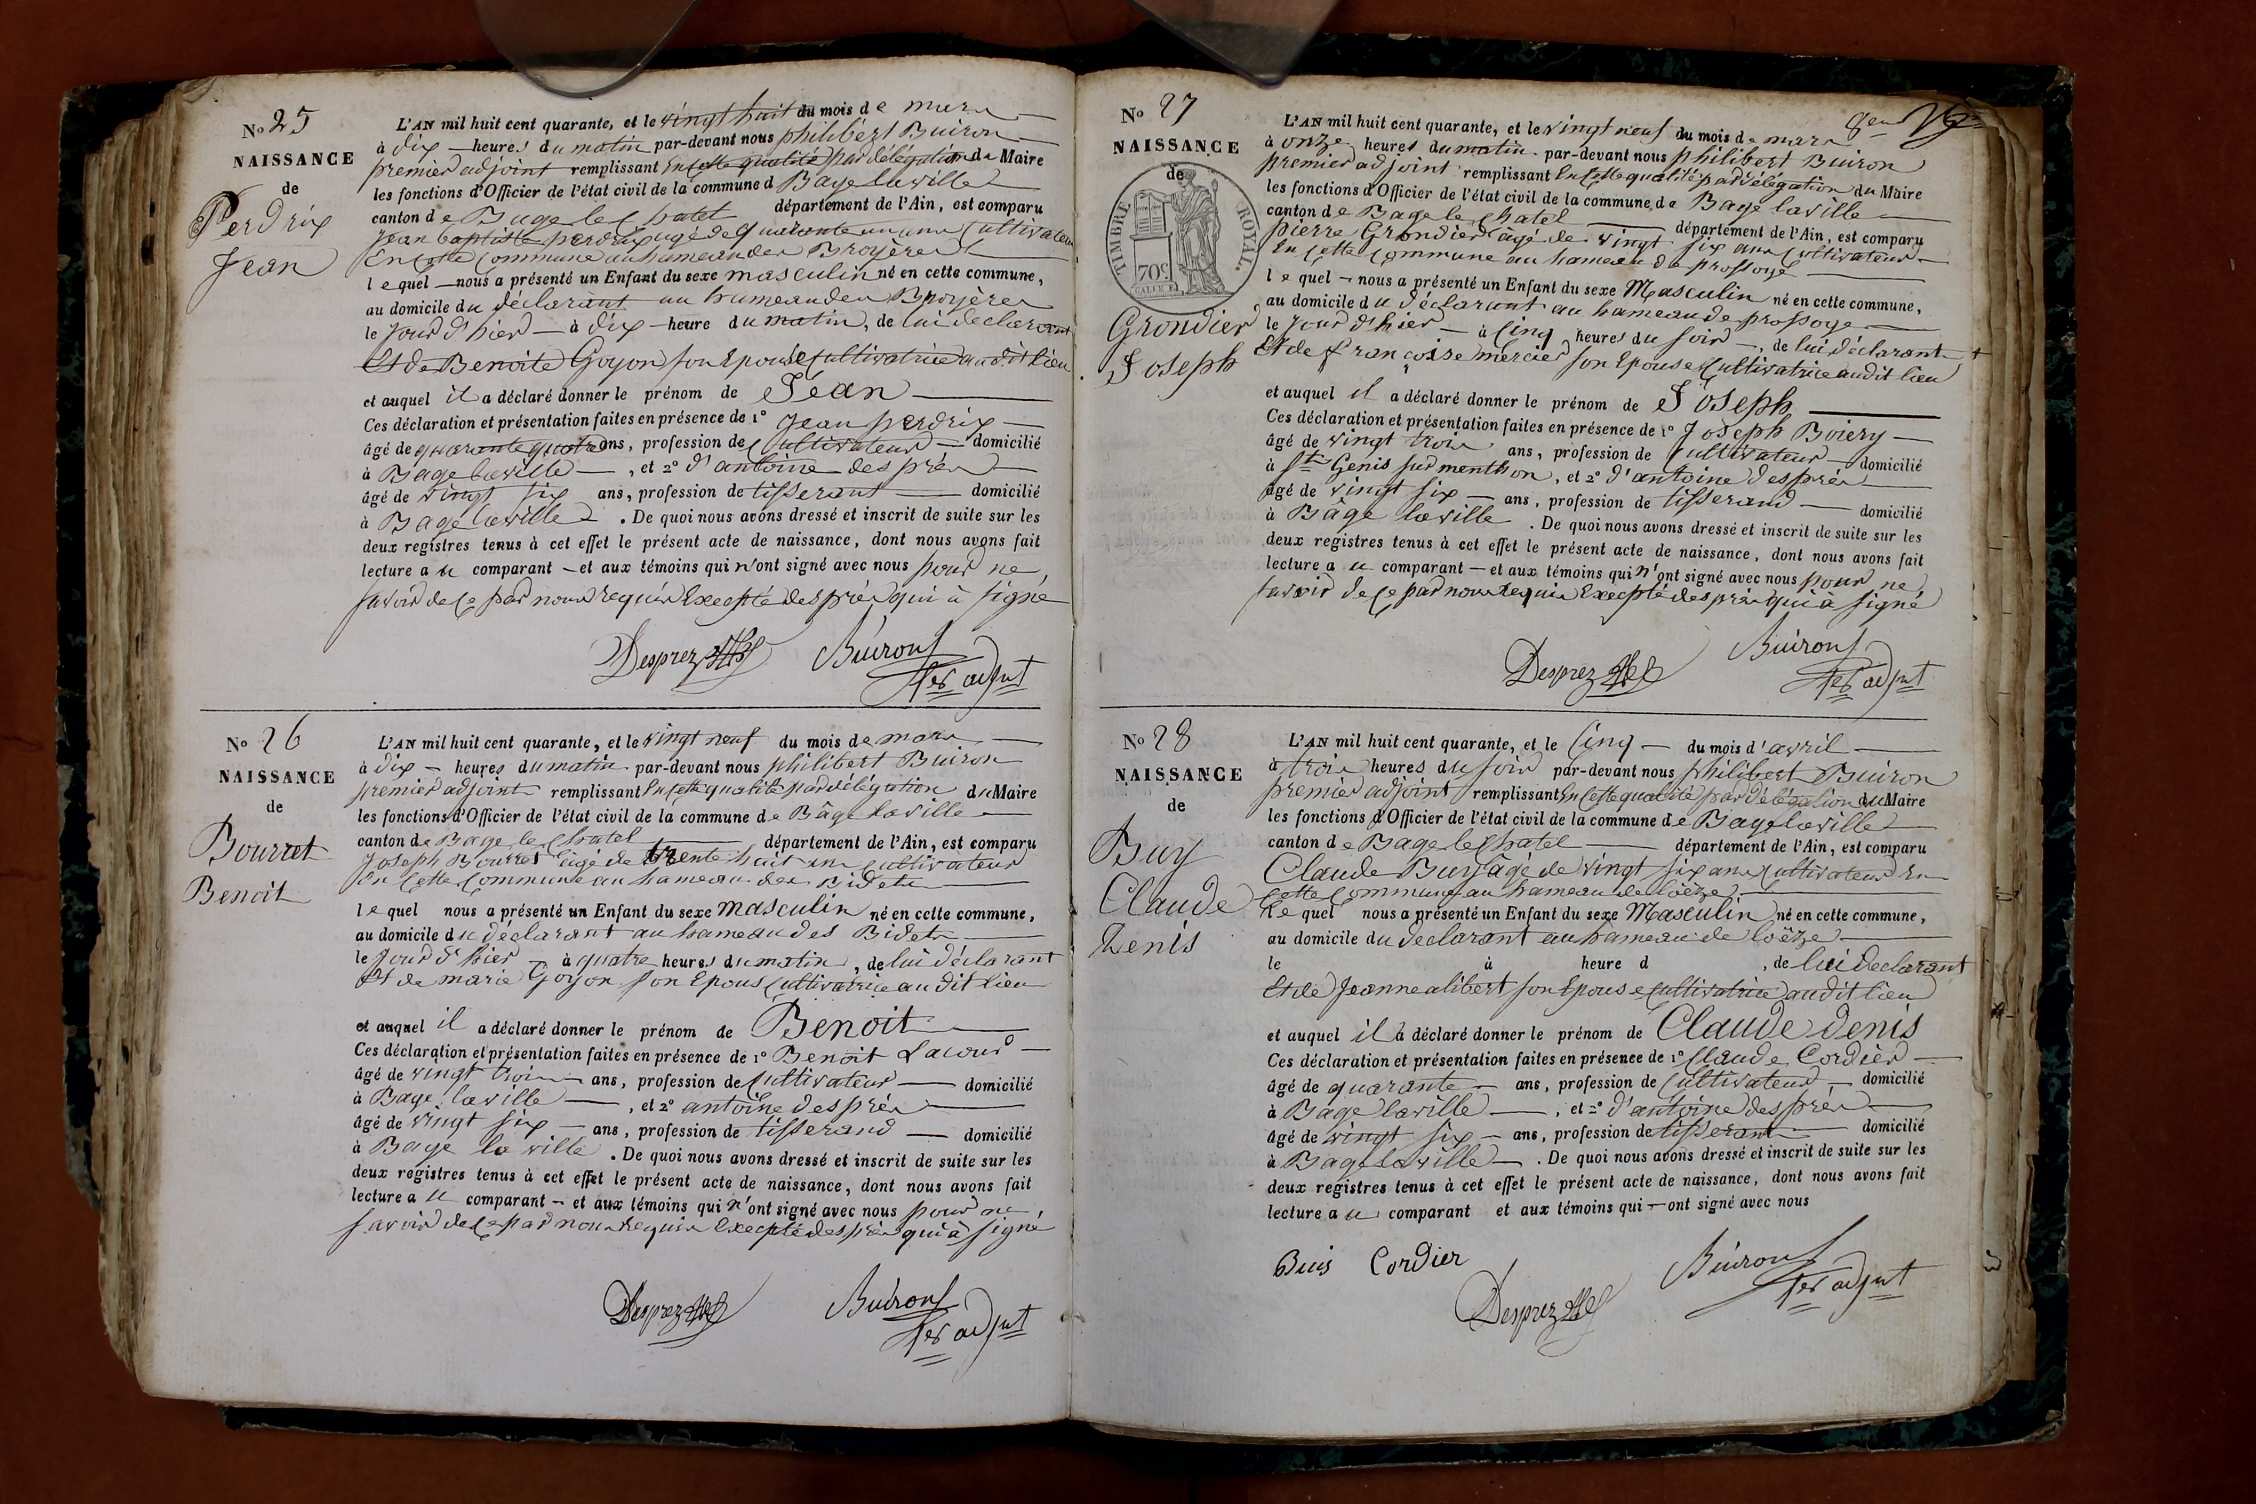 No 25
NAISSANCE
de
Perdrix
Jean
L'AN mil huit cent quarante, et le vingt huit du mois de mars
à dix heures du matin par-devant nous philibert Buiron
premier adjoint remplissant En cette qualité par délégation du Maire
les fonctions d'Officier de l'état civil de la commune d Bage laville
canton de Bage le Chatel département de l'Ain, est comparu
jean baptiste perdrix agé de quarante un ans Cultivateur
En cette Commune au hameau des Broyères
lequel nous a présenté un Enfant du sexe masculin né en cette commune,
au domicile du déclarant au hameau des Broyères
le jour d'hier à dix heure du matin, de lui declarant
Et de Benoite Goyon son Epouse Cultivatrice audit lieu
et auquel il a déclaré donner le prénom de Jéan
Ces déclaration et présentation faites en présence de 1º Jean perdrix
âgé de quarante quatre ans, profession de Cultivateur domicilié
à Bage laville, et 2º d'antoine des prés
âgé de vingt six ans, profession de tisserant domicilié
à Bage laville. De quoi nous avons dressé et inscrit de suite sur les
deux registres tenus à cet effet le présent acte de naissance, dont nous avons fait
lecture au comparant et aux témoins qui n'ont signé avec nous pour ne
savoir de ce par nous requis Excepté des prés qui à signé
Desprez Buiron
1er adjnt
No 26
NAISSANCE
de
Bourret
Benoit
L'AN mil huit cent quarante, et le vingt neuf du mois de mars
à dix heures du matin par-devant nous philibert Buiron
premier adjoint remplissant En cette qualité par délégation du Maire
les fonctions d'Officier de l'état civil de la commune de Bâge laville
canton de Bage le Chatel département de l'Ain, est comparu
Joseph Bourret âgé de trente huit ans Cultivateur
En Cette Commune au hameau des Bidets
lequel nous a présenté un Enfant du sexe masculin né en cette commune,
au domicile du déclarant au hameau des Bidets
le Jour d'hier à quatre heures du matin, de lui déclarant
Et de marie Goyon son Epous Cultivatrice au dit lieu
et auquel il a déclaré donner le prénom de Benoit
Ces déclaration et présentation faites en présence de 1º Benoit Lacour
âgé de vingt trois ans, profession de Cultivateur domicilié
à Bage laville, et 2º antoine des prés
âgé de vingt six ans, profession de tisserand domicilié
à Bage la ville. De quoi nous avons dressé et inscrit de suite sur les
deux registres tenus à cet effet le présent acte de naissance, dont nous avons fait
lecture au comparant et aux témoins qui n'ont signé avec nous pour ne
savoir de ce par nous requis Excepté des prés qui à signé
Desprez Buiron
1er adjnt
No 27
NAISSANCE
de
TIMBRE ROYAL.
70c
Grondier
Joseph
L'AN mil huit cent quarante, et le vingt neuf du mois de mars
à onze heures du matin par-devant nous philibert Buiron
premier adjoint remplissant En cette qualité par délégation du Maire
les fonctions d'Officier de l'état civil de la commune de Bage laville
canton de Bage le Chatel département de l'Ain, est comparu
pierre Grondier âgé de vingt six ans Cultivateur
En Cette Commune au hameau de prossoye
lequel nous a présenté un Enfant du sexe Masculin né en cette commune,
au domicile du déclarant au hameau de prossoye
le jour d'hier à Cinq heures du soir, de lui déclarant
Et de françoise mercier son Epouse Cultivatrice audit lieu
et auquel il a déclaré donner le prénom de Joseph
Ces déclaration et présentation faites en présence de 1º Joseph Boiery
âgé de vingt trois ans, profession de Cultivateur domicilié
à St Genis sur menthon, et 2º d'antoine des prés
âgé de vingt six ans, profession de tisserand domicilié
à Bâge laville. De quoi nous avons dressé et inscrit de suite sur les
deux registres tenus à cet effet le présent acte de naissance, dont nous avons fait
lecture au comparant et aux témoins qui n'ont signé avec nous pour ne
savoir de ce par nous requis Excepté des prés qui à signé
Desprez Buiron
1er adjnt
No 28
NAISSANCE
de
Buy
Claude
Denis
L'AN mil huit cent quarante, et le Cinq du mois d'avril
à trois heures du soir par-devant nous philibert Buiron
premier adjoint remplissant En cette qualité par délégation du Maire
les fonctions d'Officier de l'état civil de la commune de Bage laville
canton de Bage le Chatel département de l'Ain, est comparu
Claude Buy âgé de vingt six ans Cultivateur En
Cette Commune au hameau de loëze
lequel nous a présenté un Enfant du sexe Masculin né en cette commune,
au domicile du declarant au hameau de loëze
le à heure d, de lui declarant
Et de Jeanne alibert son Epouse Cultivatrice audit lieu
et auquel il à déclaré donner le prénom de Claude denis
Ces déclaration et présentation faites en présence de 1º Claude Cordier
âgé de quarante ans, profession de Cultivateur domicilié
à Bage laville, et 2º d'antoine des prés
âgé de vingt six ans, profession de tisserant domicilié
à Bage laville. De quoi nous avons dressé et inscrit de suite sur les
deux registres tenus à cet effet le présent acte de naissance, dont nous avons fait
lecture au comparant et aux témoins qui ont signé avec nous
Buis Cordier
Desprez Buiron
1er adjnt